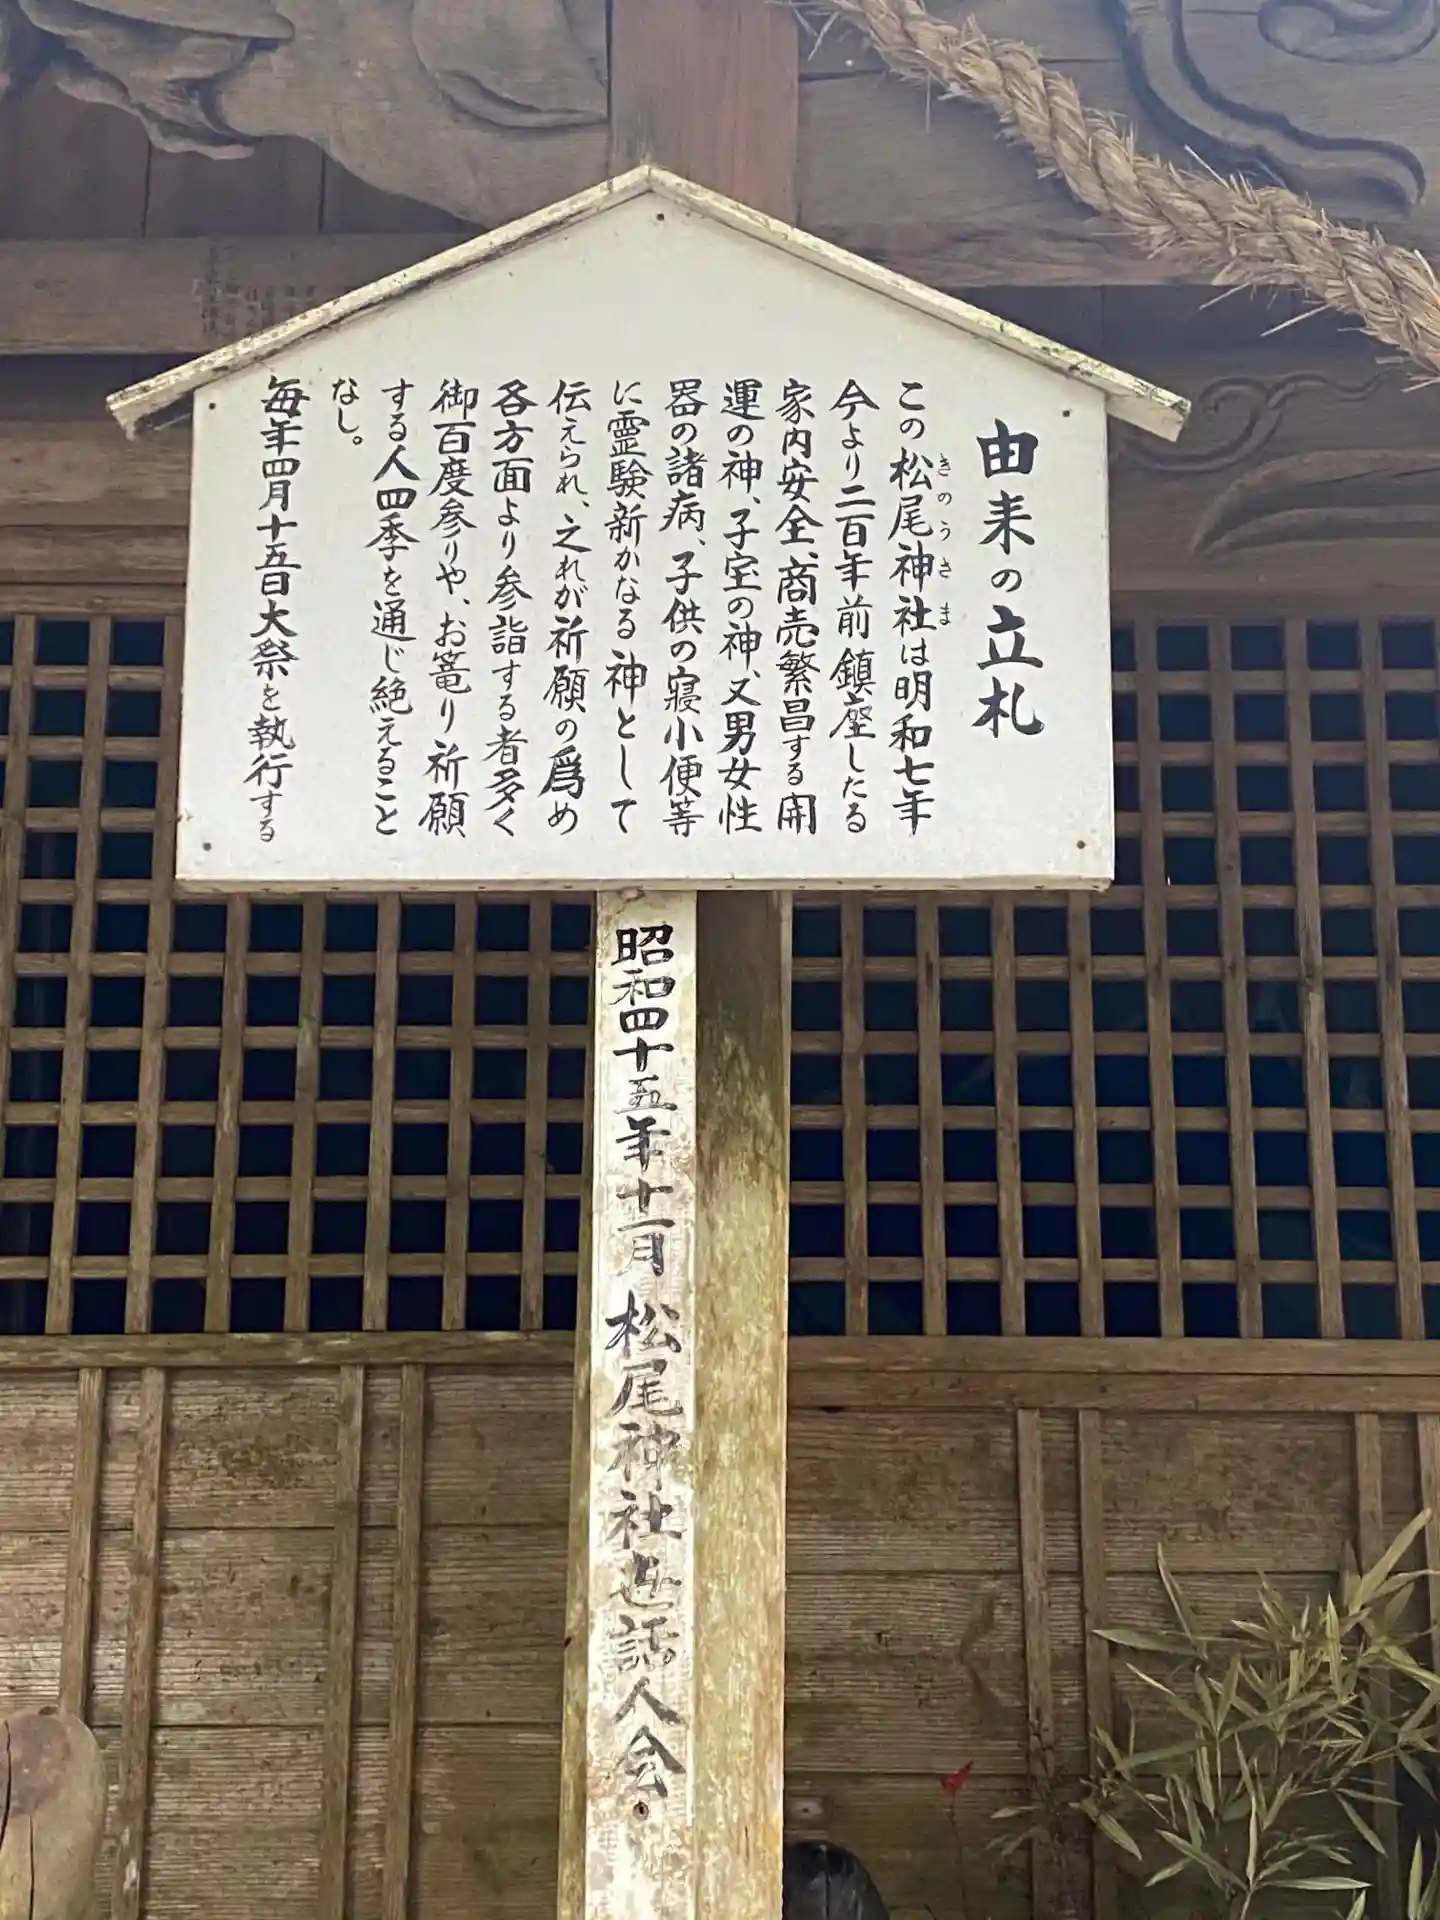 由来の立札
この松尾神社は明和七年
きのうさま
今より二百年前鎮座したる
家内安全、商売繁昌する開
運の神、子宝の神、又男女性
器の諸病、子供の寝小便等
に霊験新かなる神として
伝えられ、之れが祈願の爲め
各方面より参詣する者多く
御百度参りや、お篭り祈願
する人四季を通じ絶えること
なし。
毎年四月十五日大祭を執行する
昭和四十五年十一月 松尾神社世話人会